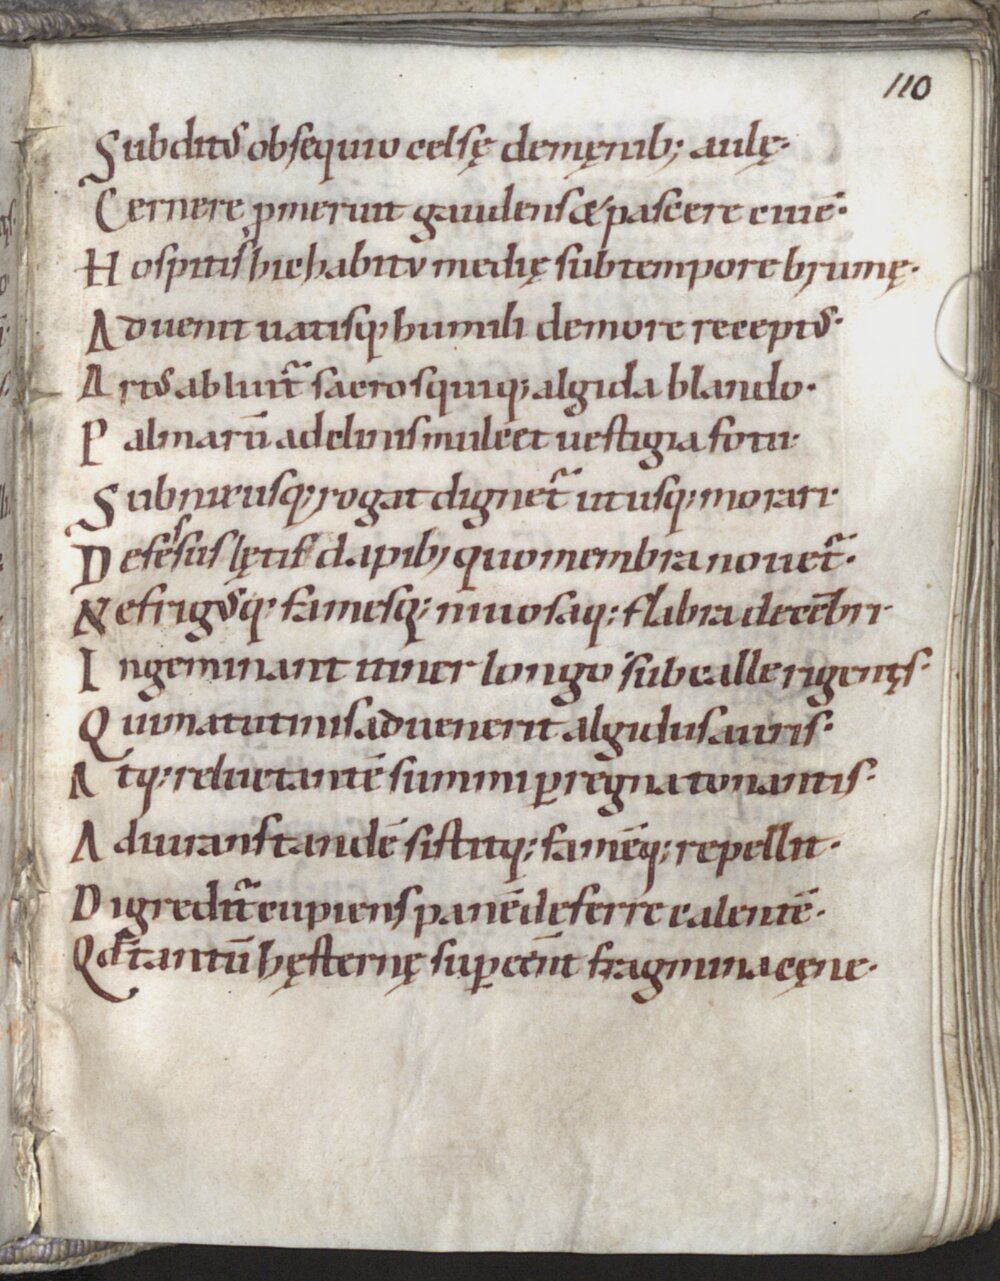 110
Subdit᷒ obsequio celsę demęnib; aulę·
Cernere ꝓmeruit gaudens & pascere ciuē·
Hospitis hic habitu medię sub tempore brumę·
Aduenit uatisq; humili de more recept᷒·
Art᷒ abluit᷑ sacros quiq; algida blando·
Palmarū adclinis mulcet uestigia fotu·
Subnixusq; rogat dignet᷑ ut usq; morari·
Defessus lętis dapib; quo membra nouet᷑·
Ne frig᷒q; famesq; niuosaq; flabra decēbri·
Ingeminant itiner longo sub calle rigentis·
Qui matutinis aduenerit algidus auris·
Atq; reluctantē summi ꝑ regna tonantis·
Adiurans tandē sistitq; famēq; repellit·
Digredit᷑ cupiens panē deferre calentē·
Qd̄ tantū hęsternę suꝑcēnt fragmina cęne·